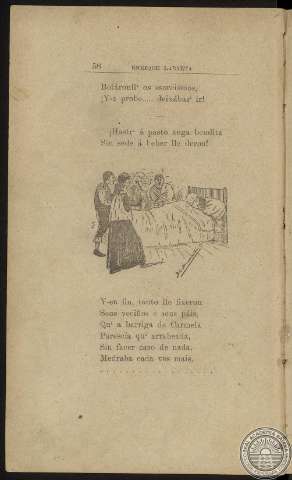 58 ENRIQUE LABARTA
Botáronll' os exorcismos,
¡Y-a probe..... deixábar' ir!
¡Hastr' á pasto auga bendita
Sin sede á beber lle deron!
Y-en fin, tanto lle fixeron
Seus veciños e seus páis,
Qu' a barriga de Carmela
Parescía qu' arrabeaba,
Sin facer caso de nada,
Medraba cada vez mais.